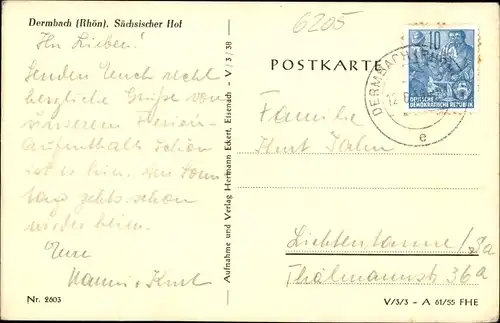 Dermbach (Rhön), Sächsischer Hof
6205
Ihr Lieben!
Senden Euch recht
herzliche Grüße von
unserem Ferien-
aufenthalt. Schön
ist es hier. Am Sonn
tag gehts schon
wieder heim.
Eure
Hanni + Kurt
Nr. 2603
Aufnahme und Verlag Hermann Eckert, Eisenach - V / 3 / 38
POSTKARTE
10
DEUTSCHE
DEMOKRATISCHE REPUBLIK
DERMBACH (RHÖN)
12
e
Familie
Kurt Jahn
Lichtentanne / Sa
Thälmannstr 36a
V/3/3 - A 61/55 FHE